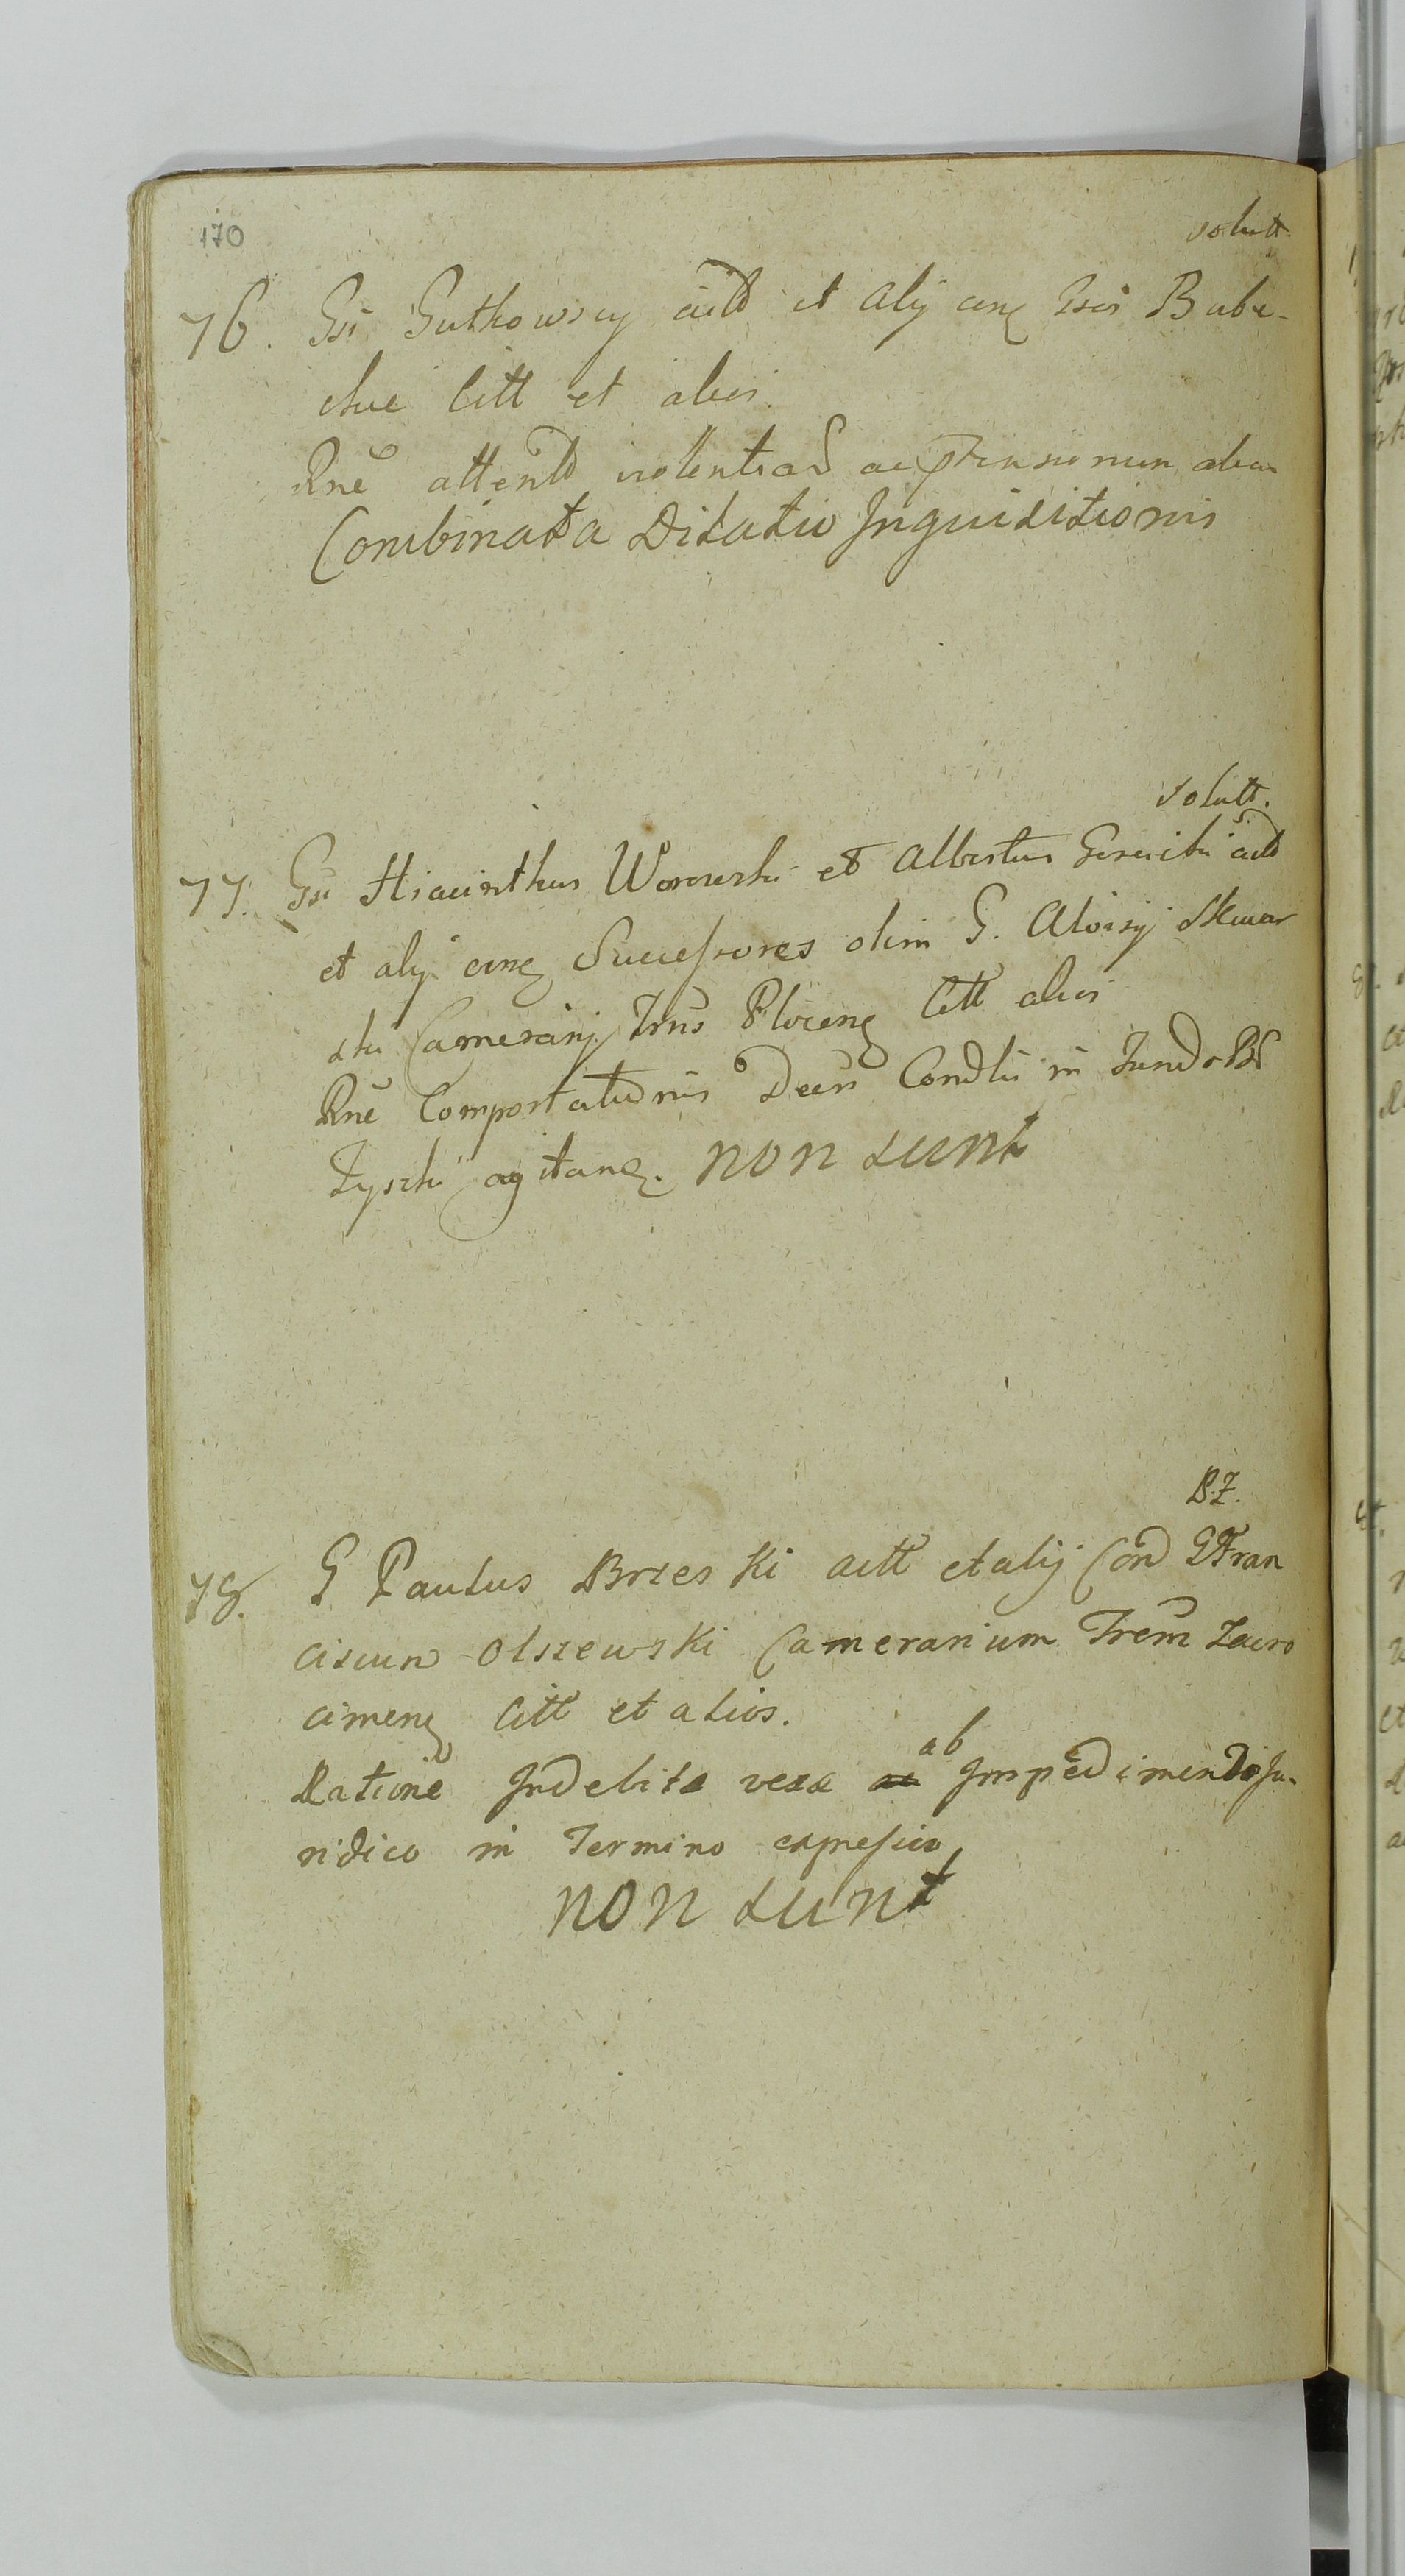 170
solutt.
76. Gsi Gutkowscy actt et alij cong Gsos Babe-
ckie Citt et alios.
Rne attentt violentiar ac pstensionum alias
Combinata Dilatio Inquisitionis
solutt.
77. Gsi Hiacinthus Worowski et Albertus actt
et alij cong Successores olim G. Aloisij Skwar
ski Camerarij Trris Ploceng Citt alios
Rne Comportationis Deers Condtti in Fundo
Tyszki agitang. non sunt
B.Z.
78. G Paulus Brzeski actt et alij Con G Fran
ciscum Olszewski Camerarium Trem Zacro
cimeng Citt et alios.
Ratione Indebite vexae ac ab Impedimento Ju-
ridico in Termino expressico
non sunt